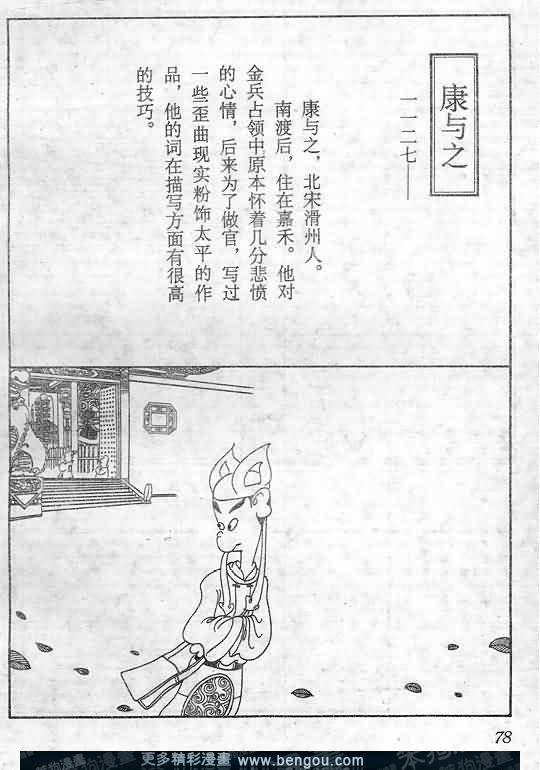 康与之
一一二七——
康与之，北宋滑州人。
南渡后，住在嘉禾。他对
金兵占领中原本怀着几分悲愤
的心情，后来为了做官，写过
一些歪曲现实粉饰太平的作
品，他的词在描写方面有很高
的技巧。
78
更多精彩漫畫 www.bengou.com